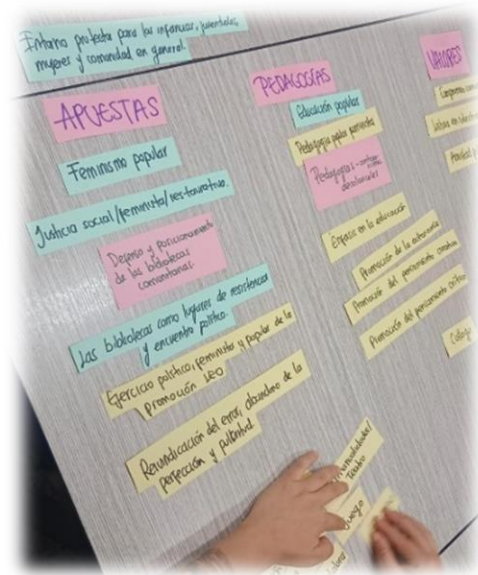 Entorno protector para las infancias, juventudes,
mujeres y comunidad en general.
APUESTAS
Feminismo popular
Justicia social/feminista/restaurativa.
Defensa y posicionamiento
de las bibliotecas
comunitarias.
Las bibliotecas como lugares de resistencia
y encuentro político.
Ejercicio político, feminista y popular de la
promoción LEO
Reivindicación del error, abandono de la
perfección y pulcritud
PEDAGOGÍAS
Educación popular
Pedagogía popular feminista
Pedagogías
decoloniales
Énfasis en la educación
Promoción de la autonomía
Promoción del pensamiento creativo
Promoción del pensamiento crítico
Manualidades/
Teatro
Juego
VALORES